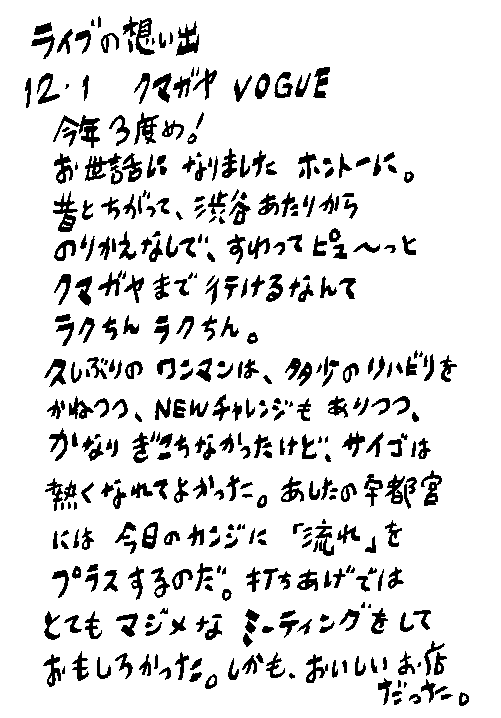 ライブの想い出
12.1 クマガヤ VOGUE
今年3度め!
お世話に なりました ホントーに。
昔とちがって、渋谷あたりから
のりかえなしで、すわってピュ〜っと
クマガヤまで行けるなんて
ラクちん ラクちん。
久しぶりの ワンマンは、多少のリハビリを
かねつつ、NEWチャレンジも ありつつ、
かなり ぎこちなかったけど、サイゴは
熱くなれてよかった。あしたの宇都宮
には 今日のカンジに 「流れ」を
プラスするのだ。打ちあげでは
とても マジメな ミーティングをして
おもしろかった。しかも、おいしいお店
だった。